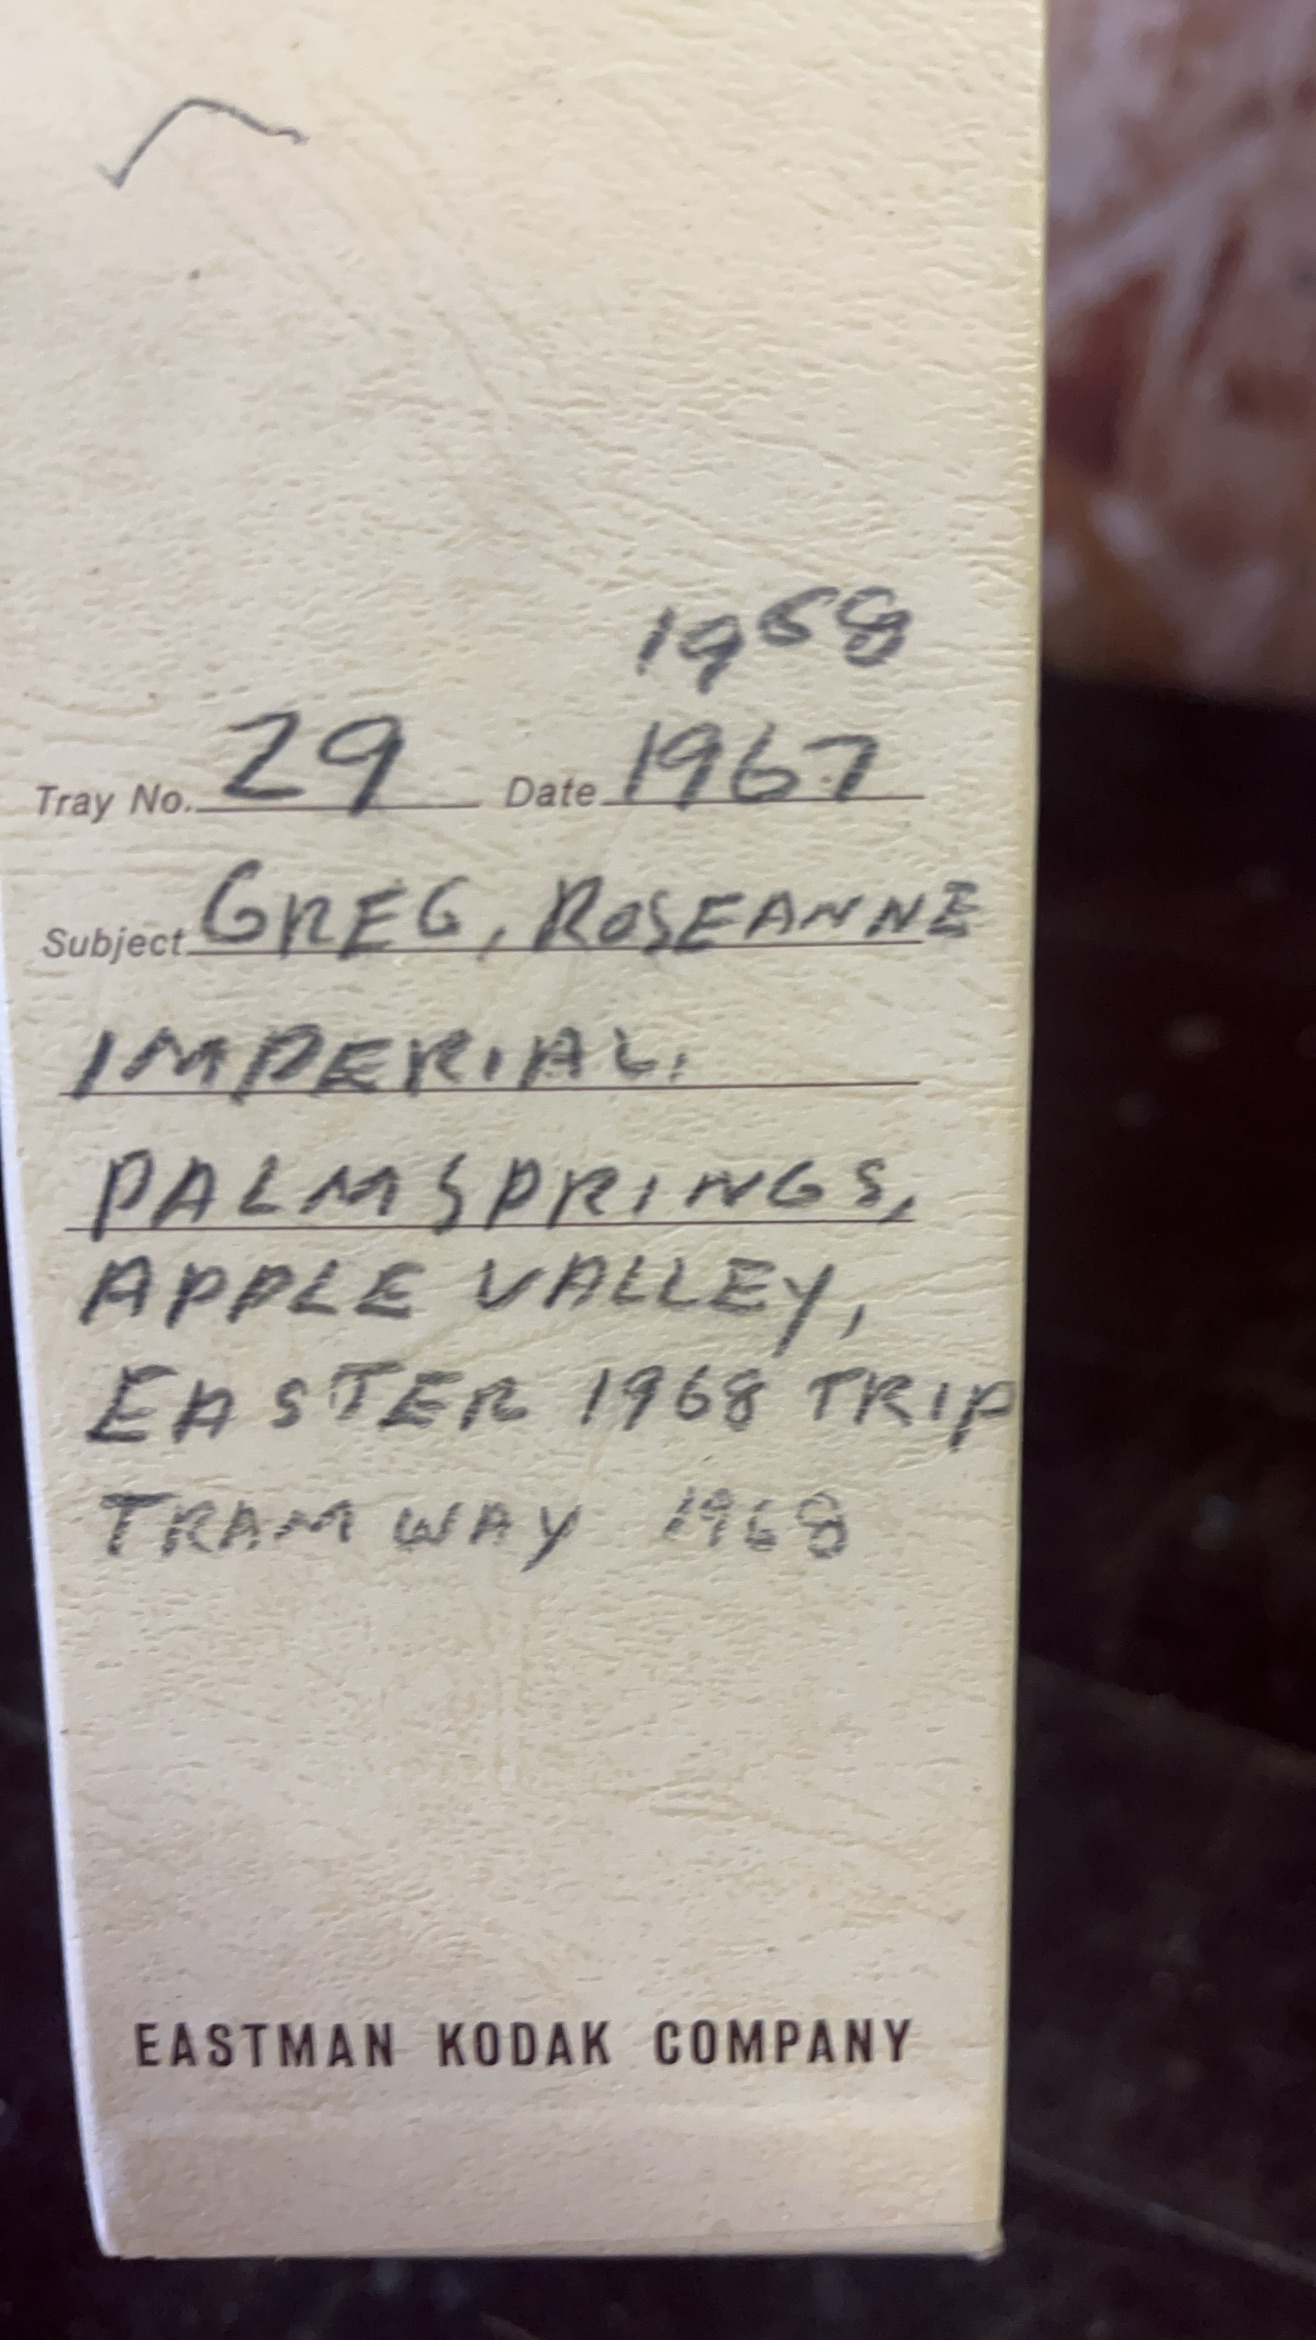 1968
Tray No. 29 Date 1967
Subject GREG, ROSEANNE
IMPERIAL,
PALM SPRINGS,
APPLE VALLEY,
EASTER 1968 TRIP
TRAM WAY 1968
EASTMAN KODAK COMPANY